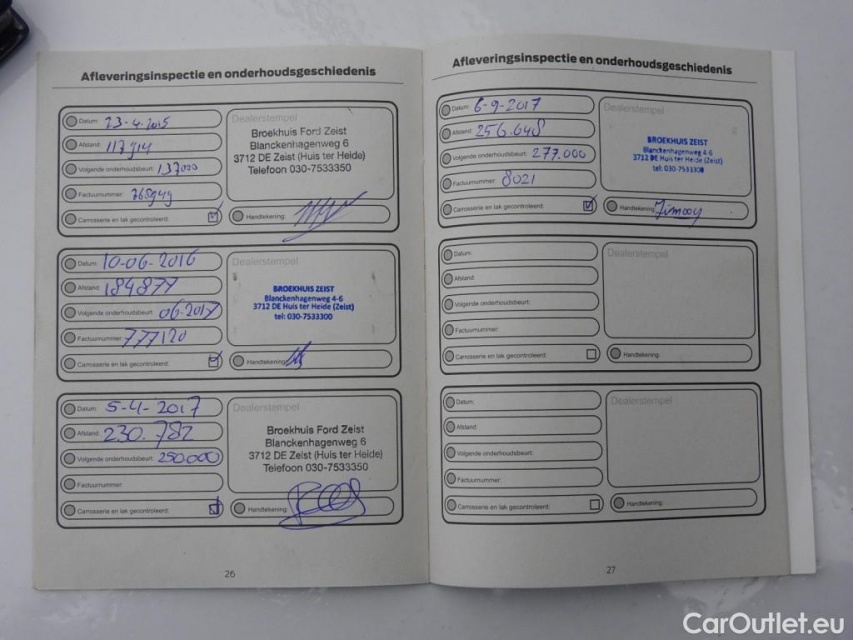 Afleveringsinspectie en onderhoudsgeschiedenis
Datum: 23-4-2015
Afstand: 117914
Volgende onderhoudsbeurt: 137000
Factuurnummer:
Carrosserie en lak gecontroleerd:
Dealerstempel
Broekhuis Ford Zeist
Blanckenhagenweg 6
3712 DE Zeist (Huis ter Heide)
Telefoon 030-7533350
Handtekening:
Datum: 10-06-2016
Afstand: 184877
Volgende onderhoudsbeurt: 06-2017
Factuurnummer: 777120
Carrosserie en lak gecontroleerd:
Dealerstempel
BROEKHUIS ZEIST
Blanckenhagenweg 4-6
3712 DE Huis ter Heide (Zeist)
tel: 030-7533300
Handtekening:
Datum: 5-4-2017
Afstand: 230.782
Volgende onderhoudsbeurt: 250.000
Factuurnummer:
Carrosserie en lak gecontroleerd:
Dealerstempel
Broekhuis Ford Zeist
Blanckenhagenweg 6
3712 DE Zeist (Huis ter Heide)
Telefoon 030-7533350
Handtekening:
26
Afleveringsinspectie en onderhoudsgeschiedenis
Datum: 6-9-2017
Afstand: 256.648
Volgende onderhoudsbeurt: 277.000
Factuurnummer: 8021
Carrosserie en lak gecontroleerd:
Dealerstempel
BROEKHUIS ZEIST
Blanckenhagenweg 4-6
3712 DE Huis ter Heide (Zeist)
tel: 030-7533300
Handtekening:
Datum:
Afstand:
Volgende onderhoudsbeurt:
Factuurnummer:
Carrosserie en lak gecontroleerd:
Dealerstempel
Handtekening:
Datum:
Afstand:
Volgende onderhoudsbeurt:
Factuurnummer:
Carrosserie en lak gecontroleerd:
Dealerstempel
Handtekening:
27
CarOutlet.eu